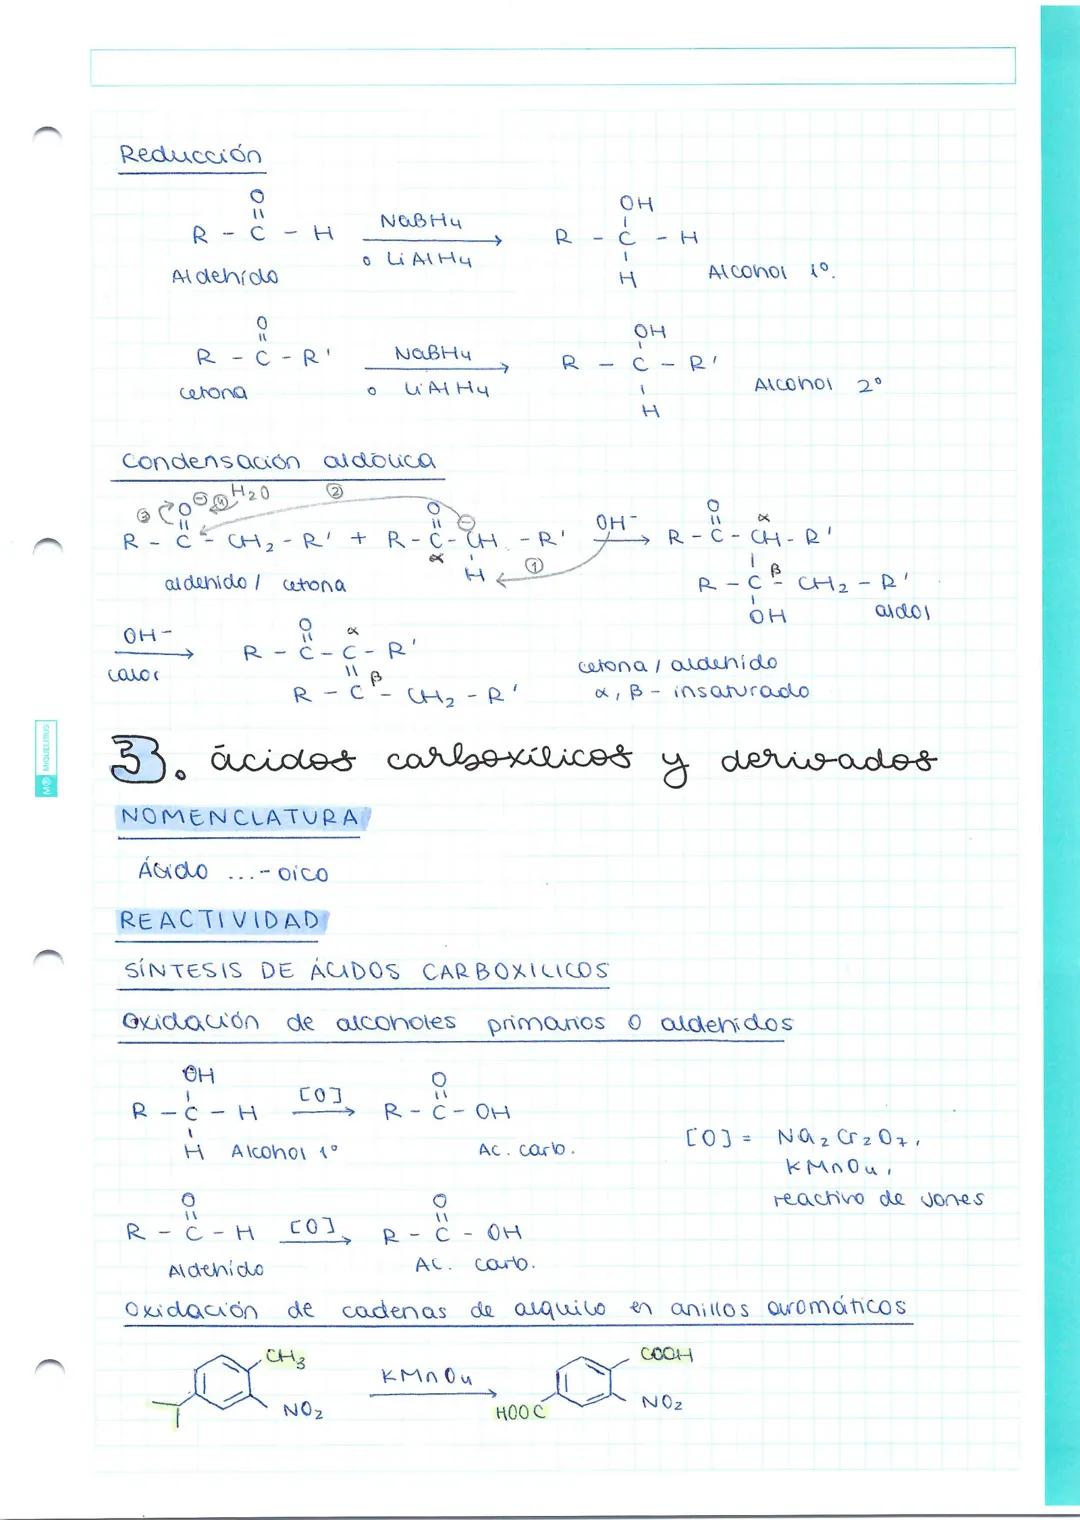 Reducción
O
R - C - H
NaBH4
o LiAlH4
OH
R - C - H
H
Aldehído
Alcohol 1º.
O
R - C - R'
NaBH4
o LiAlH4
OH
R - C - R'
H
cetona
Alcohol 2º
Condensación aldólica
③ O ⊖ ④ H2O ②
R - C - CH2 - R' + R - C - CH - R'
O ⊖
α H ①
OH-
O α
R - C - CH - R'
R - C - CH2 - R'
β
OH
aldehido / cetona
aldol
OH-
calor
O α
R - C - C - R'
R - C - CH2 - R'
β
cetona / aldehido
α, β - insaturado
3. ácidos carboxílicos y derivados
NOMENCLATURA
Ácido ...- oico
REACTIVIDAD
SÍNTESIS DE ÁCIDOS CARBOXILICOS
Oxidación de alcoholes primarios o aldehidos
OH
R - C - H
H Alcohol 1º
[O]
O
R - C - OH
Ac. carb.
[O] = Na2Cr2O7,
KMnO4,
reactivo de Jones
O
R - C - H
[O]
O
R - C - OH
Aldehido
Ac. carb.
Oxidación de cadenas de alquilo en anillos aromáticos
CH3
NO2
KMnO4
COOH
HOOC
NO2
MIQUELRIUS